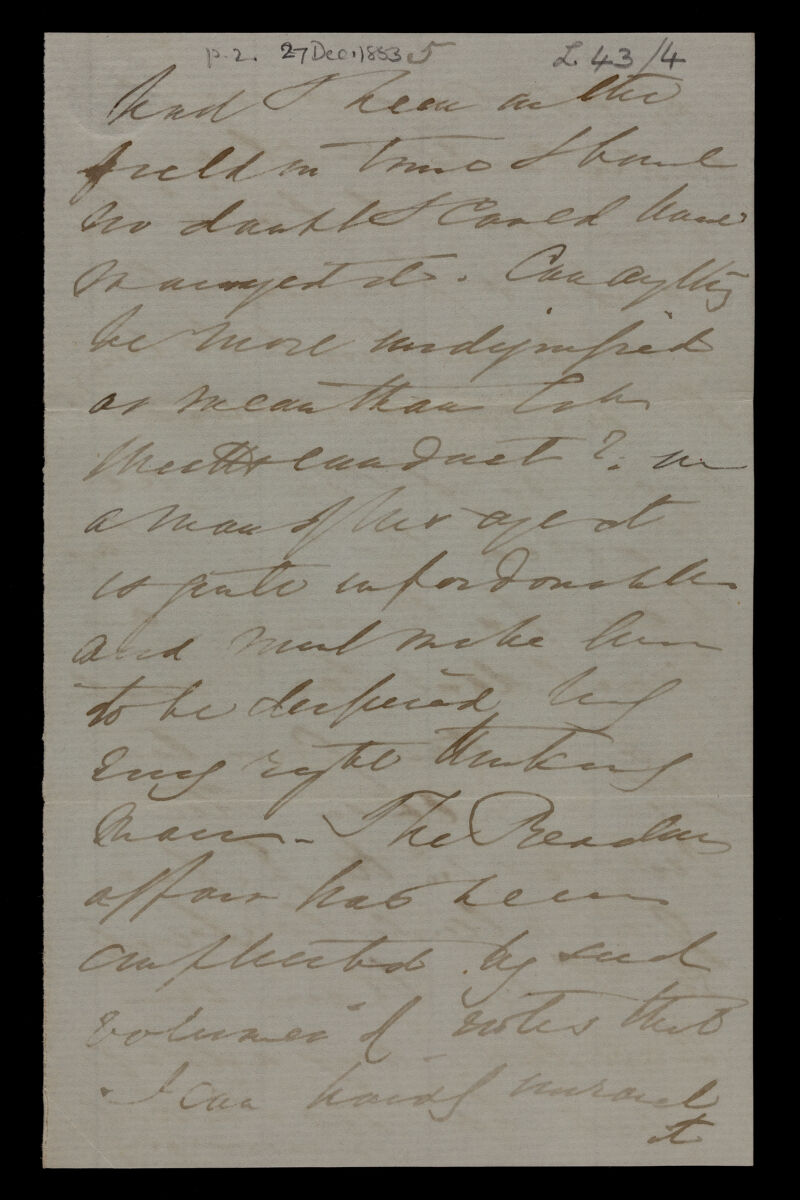 p.2. 27 Dec. 1853 5 L 43/4
had I been in the
field in time I have
no doubt I could have
managed it. Can anything
be more undignified
or mean than
conduct? in
a man of his age it
is quite unpardonable
and must make him
to be despised by
every right thinking
man - The Reading
affair has been
complicated by such
volumes of notes that
I can hardly unravel
it